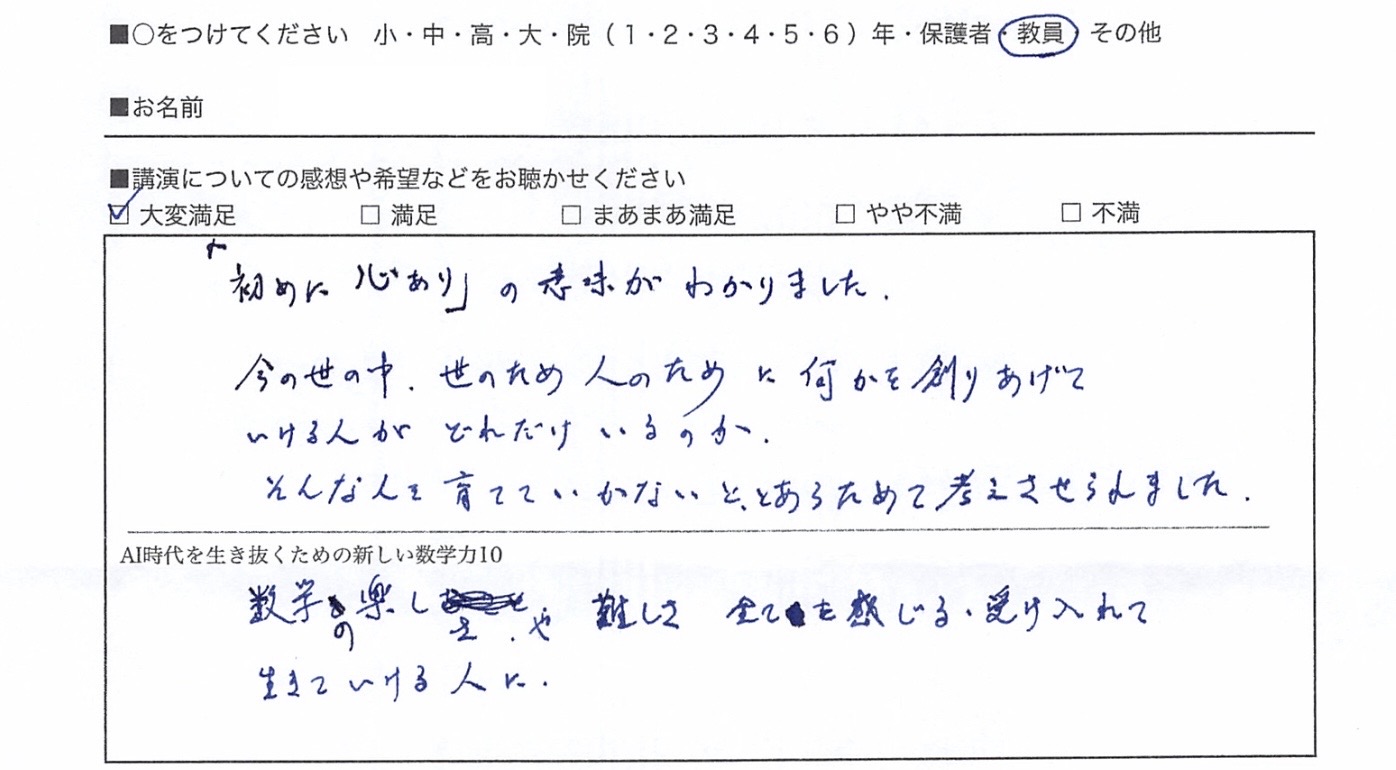 ■○をつけてください　小・中・高・大・院（1・2・3・4・5・6）年・保護者・教員・その他
■お名前
■講演についての感想や希望などをお聴かせください
☑ 大変満足　□ 満足　□ まあまあ満足　□ やや不満　□ 不満
「初めに心あり」の意味がわかりました.
今の世の中. 世のため人のために何かを創りあげて
いける人がどれだけいるのか.
そんな人を育てていかないと、とあらためて考えさせられました.
AI時代を生き抜くための新しい数学力10
数学の楽しさ.や難しさ 全てを感じる・受け入れて
生きていける人に.